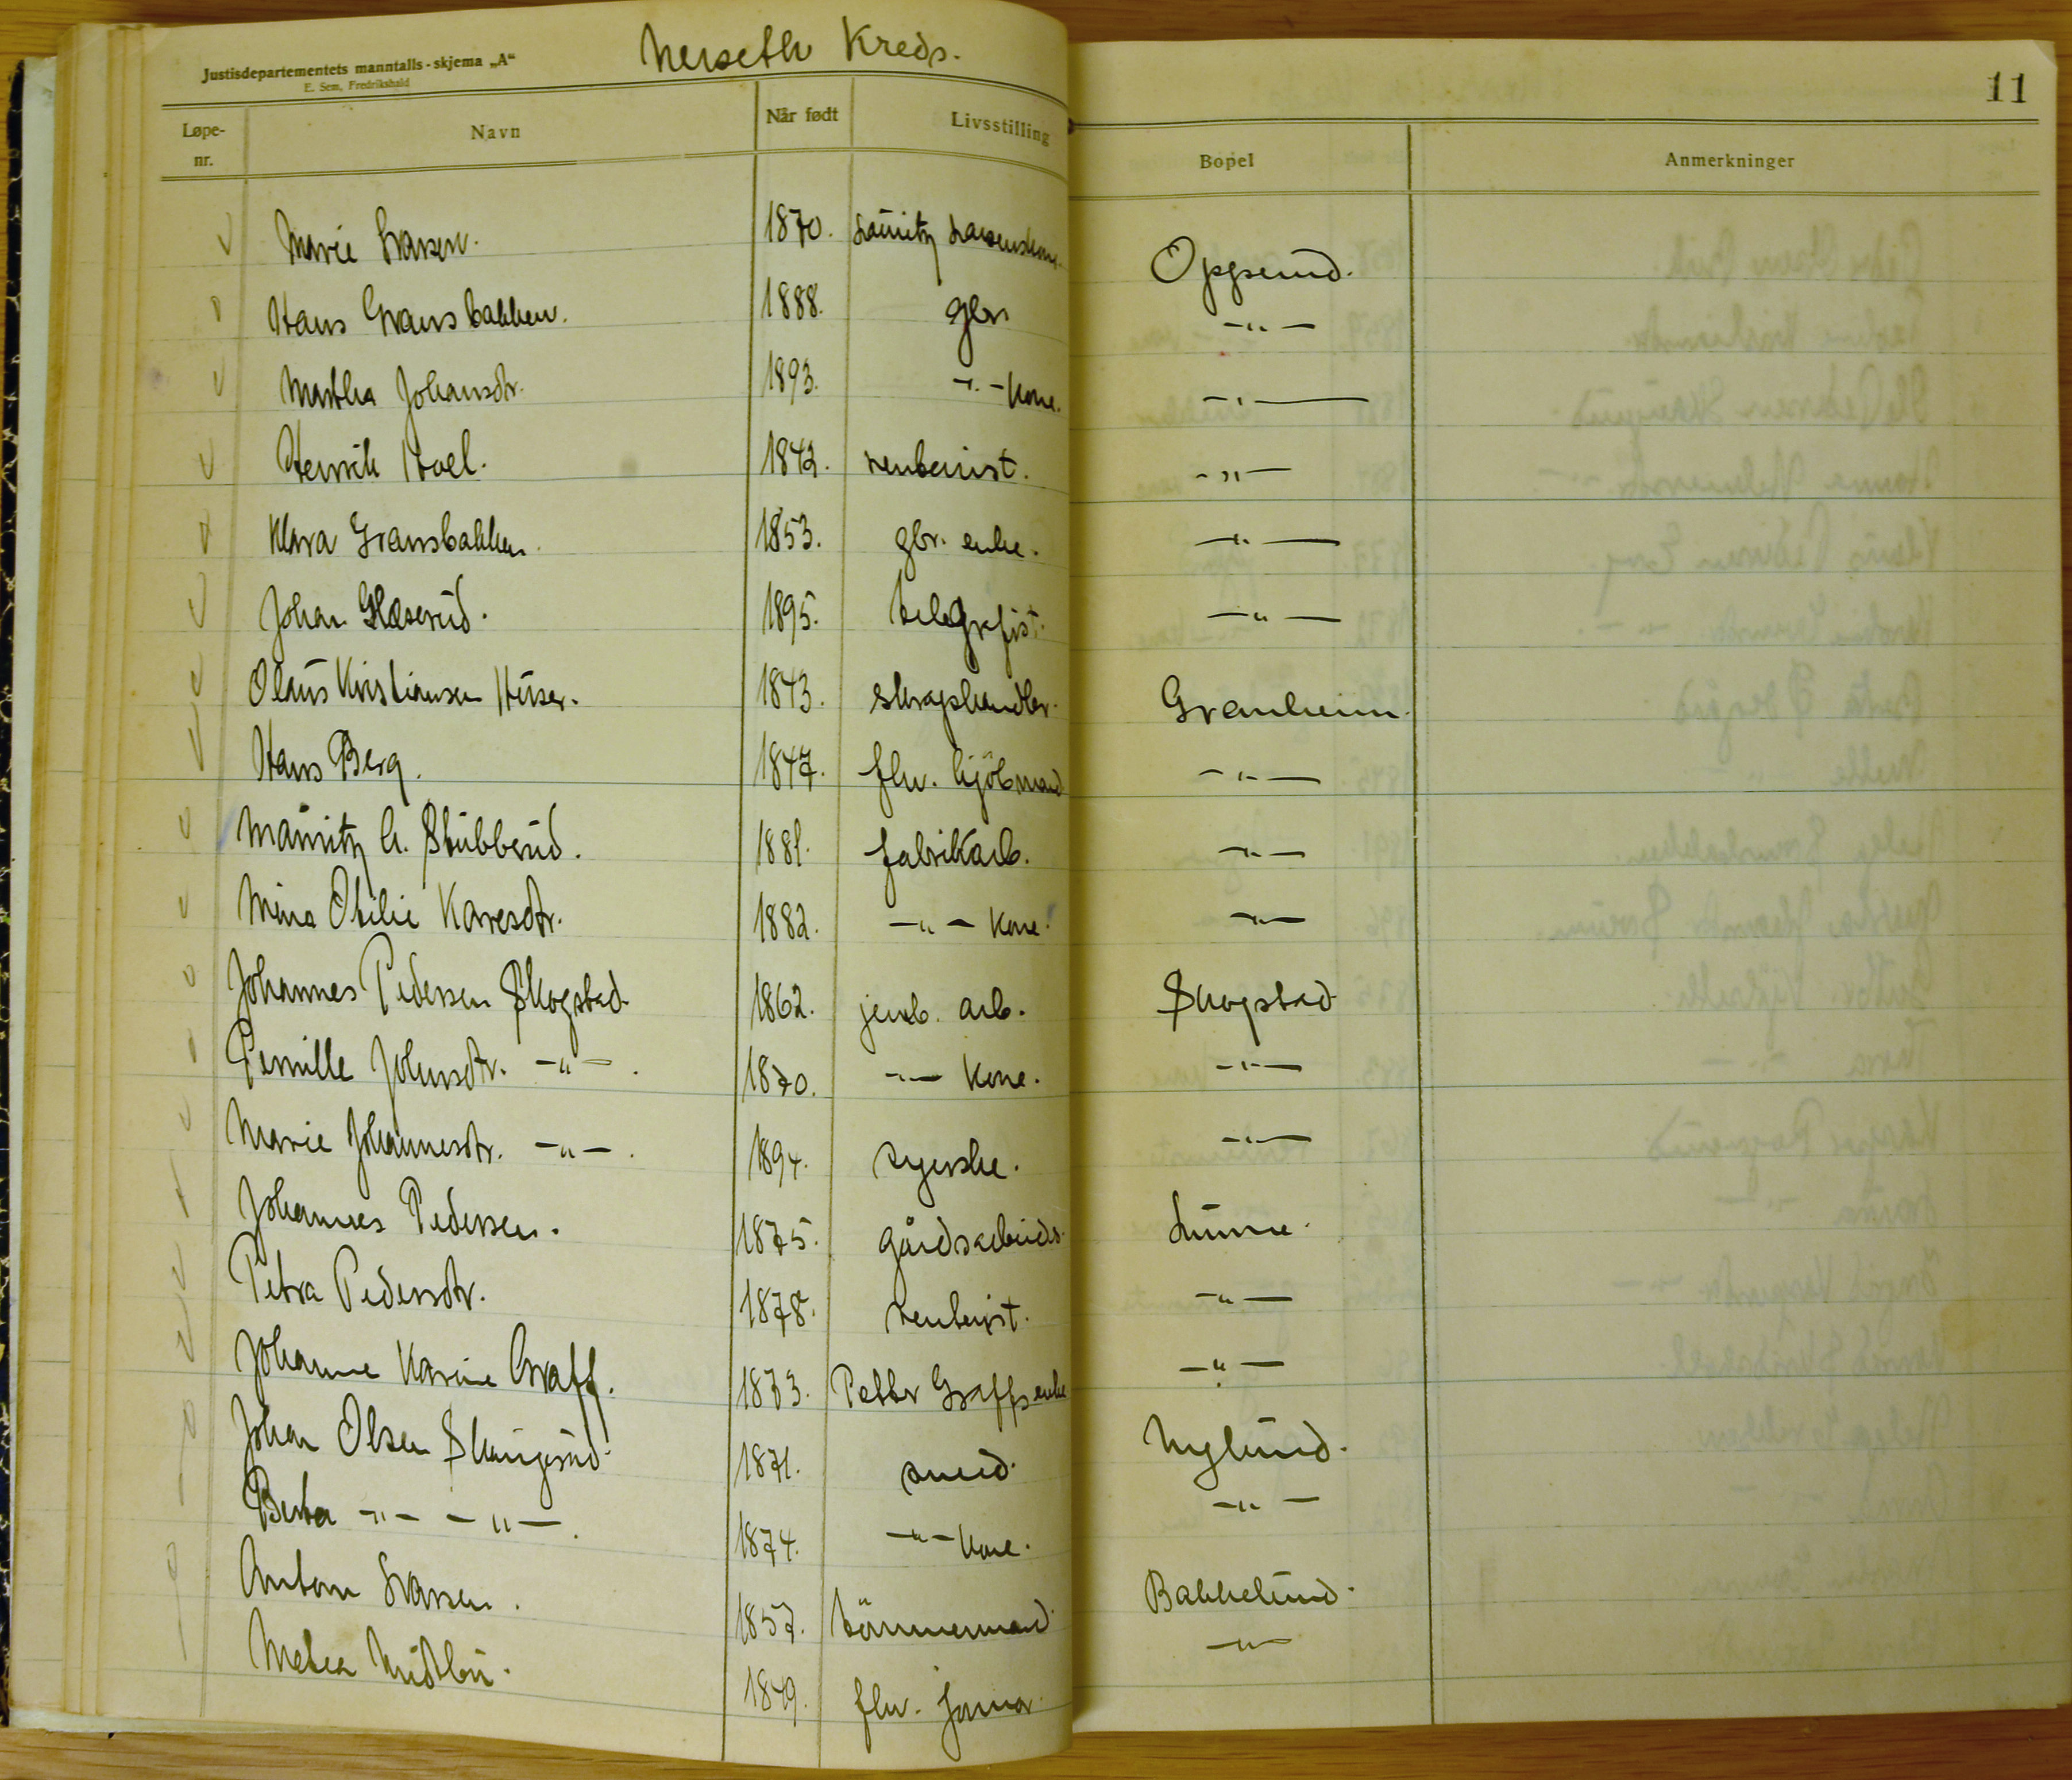 Justisdepartementets manntalls-skjema „A“
E. Sem, Fredrikshald
Kreds.
11
Løpe-nr. Navn Når født Livsstilling Bopel Anmerkninger
Marie Larsen. 1870. Lauritz Larsens kone. Oppsund.
Hans Gransbakken. 1888. gbr -"-
Martha Johansdtr. 1893. -"- kone. -"-
Henrik Hoel. 1842. rentenist. -"-
Klara Gransbakken. 1853. gbr. enke. -"-
Johan Glæserud. 1895. telegrafist. -"-
Olaus Kristiansen Huser. 1843. skraphandler. Granheim.
Hans Berg. 1847. fhv. kjöbmand -"-
Mauritz A. Stubberud. 1881. fabrikarb. -"-
Mina Otilie Karesdtr. 1882. -"- kone. -"-
Johannes Pedersen Skogstad 1862. jernb. arb. Skogstad
Pernille Johnsdtr. -"-. 1870. -"- kone. -"-
Marie Johannesdtr. -"-. 1894. syerske. -"-
Johannes Pedersen. 1875. gårdsarbeider. Lunne.
Petra Pedersdtr. 1878. rentenist. -"-
Johanne Karine Graff. 1873. Petter Graffs enke -"-
Johan Olsen Skaugerud. 1871. smed. Nylund.
Berta -"- -"-. 1874. -"- kone. -"-
Anton Larsen. 1857. tömmermand. Bakkelund.
1849. fhv. -"-